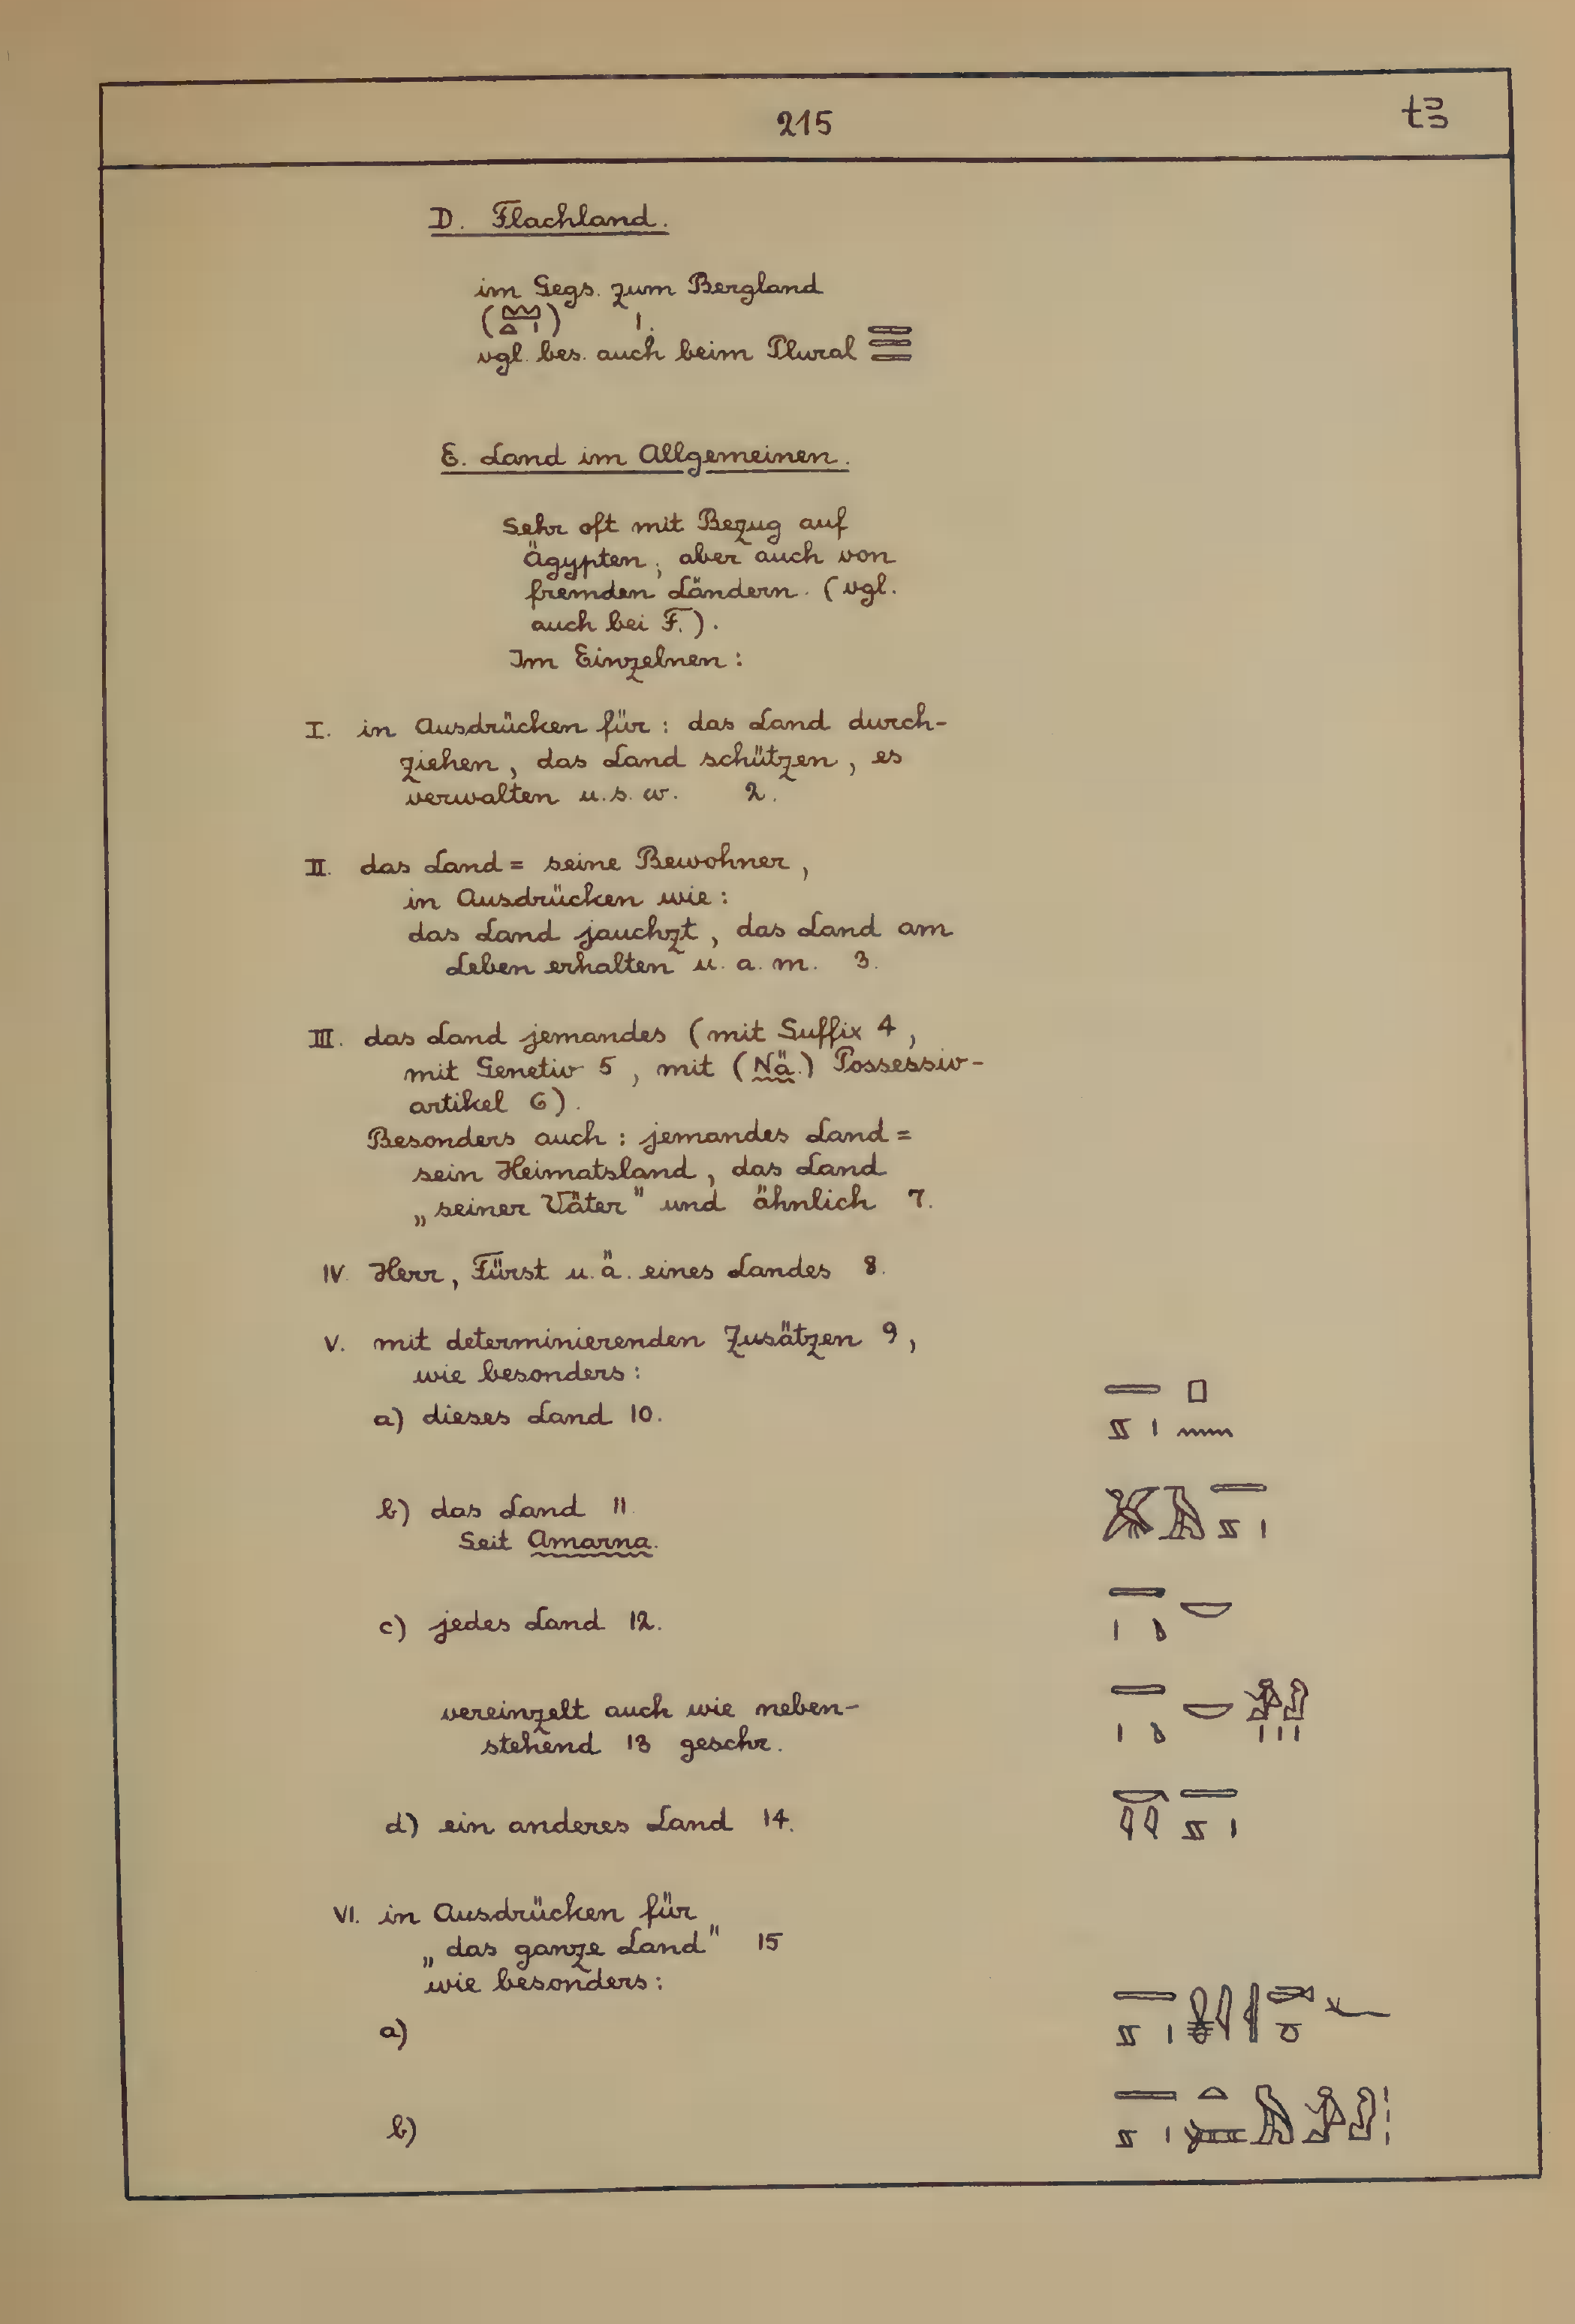 215
tꜣ
D. Flachland.
im Gegs. zum Bergland
(𓈉𓏏𓏤) 1.
vgl. bes. auch beim Plural 𓇿𓇿𓇿
E. Land im Allgemeinen.
Sehr oft mit Bezug auf
Ägypten, aber auch von
fremden Ländern. (vgl.
auch bei F.).
Im Einzelnen:
I. in Ausdrücken für: das Land durch-
ziehen, das Land schützen, es
verwalten u.s.w. 2.
II. das Land = seine Bewohner,
in Ausdrücken wie:
das Land jauchzt, das Land am
Leben erhalten u. a. m. 3.
III. das Land jemandes (mit Suffix 4,
mit Genetiv 5, mit (Nä.) Possessiv-
artikel 6).
Besonders auch: jemandes Land =
sein Heimatsland, das Land
„seiner Väter" und ähnlich 7.
IV. Herr, Fürst u.ä. eines Landes 8.
V. mit determinierenden Zusätzen 9,
wie besonders:
a) dieses Land 10.
b) das Land 11.
Seit Amarna.
c) jedes Land 12.
vereinzelt auch wie neben-
stehend 13 geschr.
d) ein anderes Land 14.
VI. in Ausdrücken für
„das ganze Land" 15
wie besonders:
a)
b)